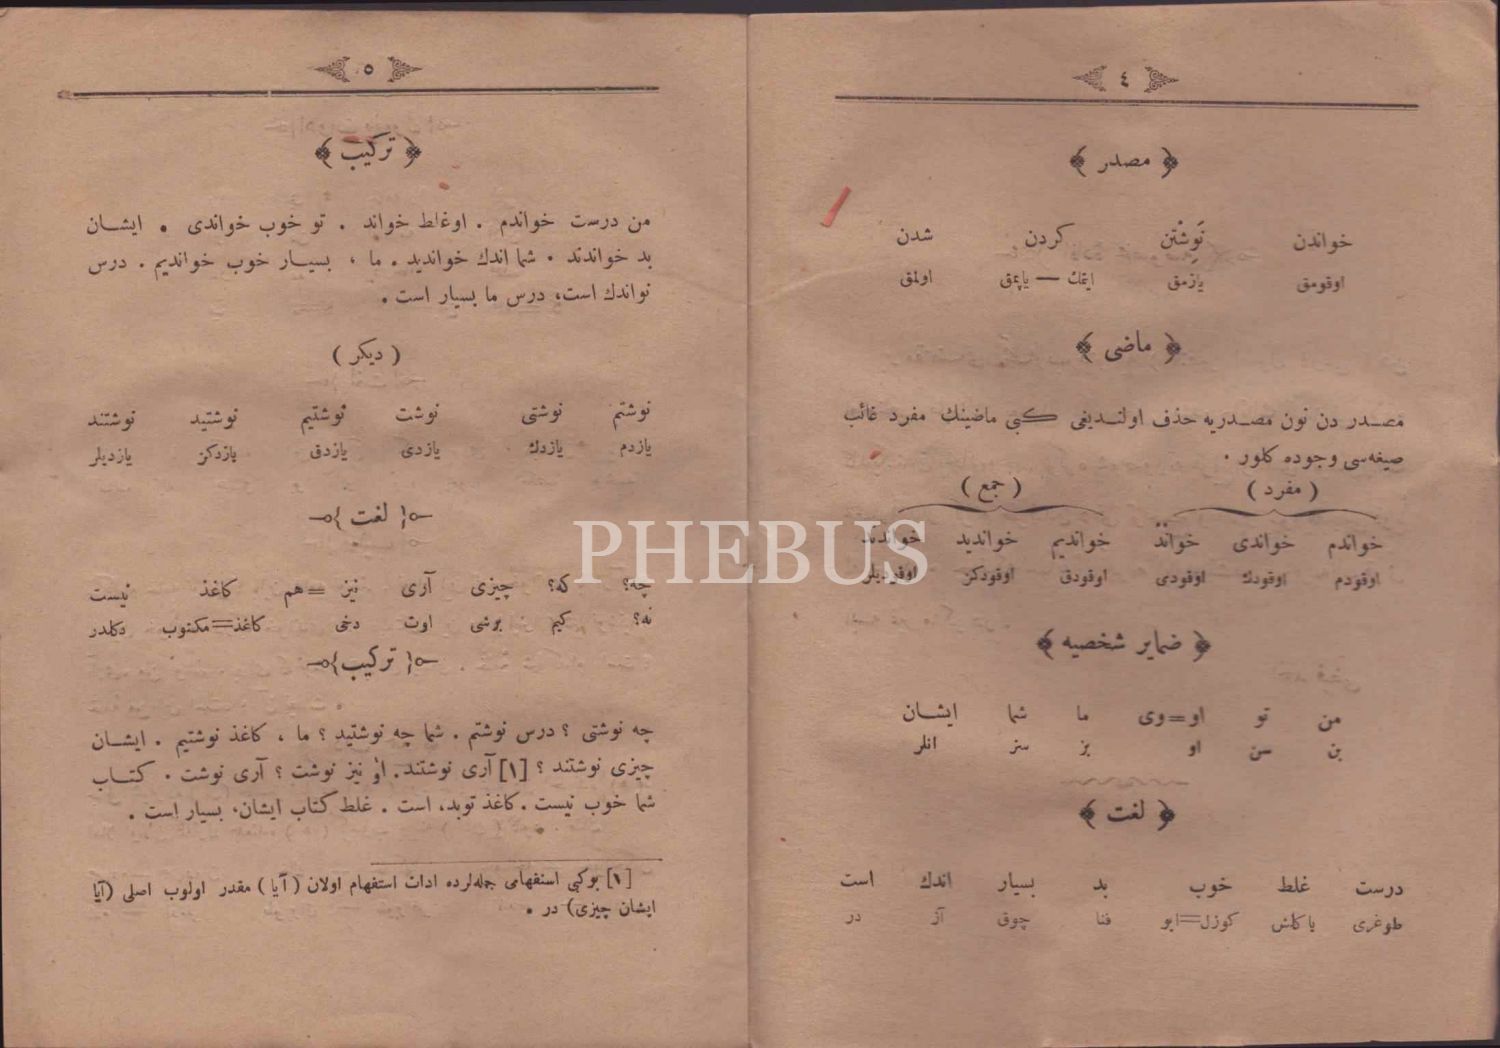 ٤
﴿ مصدر ﴾
خواندن نَوِشْتن کردن شدن
اوقومق يازمق ايتمك — ياپمق اولمق
﴿ ماضی ﴾
مصدر دن نون مصدريه حذف اولنديغی كبی ماضينك مفرد غائب
صيغه‌سی وجوده كلور .
( مفرد ) ( جمع )
خواندم خواندی خواند خوانديم خوانديد خواندند
اوقودم اوقودك اوقودی اوقودق اوقودكز اوقوديلر
﴿ ضماير شخصيه ﴾
من تو او=وی ما شما ايشان
بن سن او بز سز انلر
﴿ لغت ﴾
درست غلط خوب بد بسيار اندك است
طوغری ياكلش كوزل=ايو فنا چوق آز در
٥
﴿ تركيب ﴾
من درست خواندم . او غلط خواند . تو خوب خواندی . ايشان
بد خواندند . شما اندك خوانديد . ما ، بسيار خوب خوانديم . درس
تواندك است، درس ما بسيار است .
( ديكر )
نوشتم نوشتی نوشت نوشتيم نوشتيد نوشتند
يازدم يازدك يازدی يازدق يازدكز يازديلر
{ لغت }
چه؟ كه؟ چيزی آری نيز =هم كاغذ نيست
نه؟ كيم برشی اوت دخی كاغذ=مكتوب دكلدر
{ تركيب }
چه نوشتی ؟ درس نوشتم . شما چه نوشتيد ؟ ما ، كاغذ نوشتيم . ايشان
چيزی نوشتند ؟ [١] آری نوشتند . او نيز نوشت ؟ آری نوشت . كتاب
شما خوب نيست . كاغذ توبد، است . غلط كتاب ايشان، بسيار است .
[١] بوكبی استفهامی جمله‌لرده ادات استفهام اولان ( آيا ) مقدر اولوب اصلی (آيا
ايشان چيزی) در .
PHEBUS